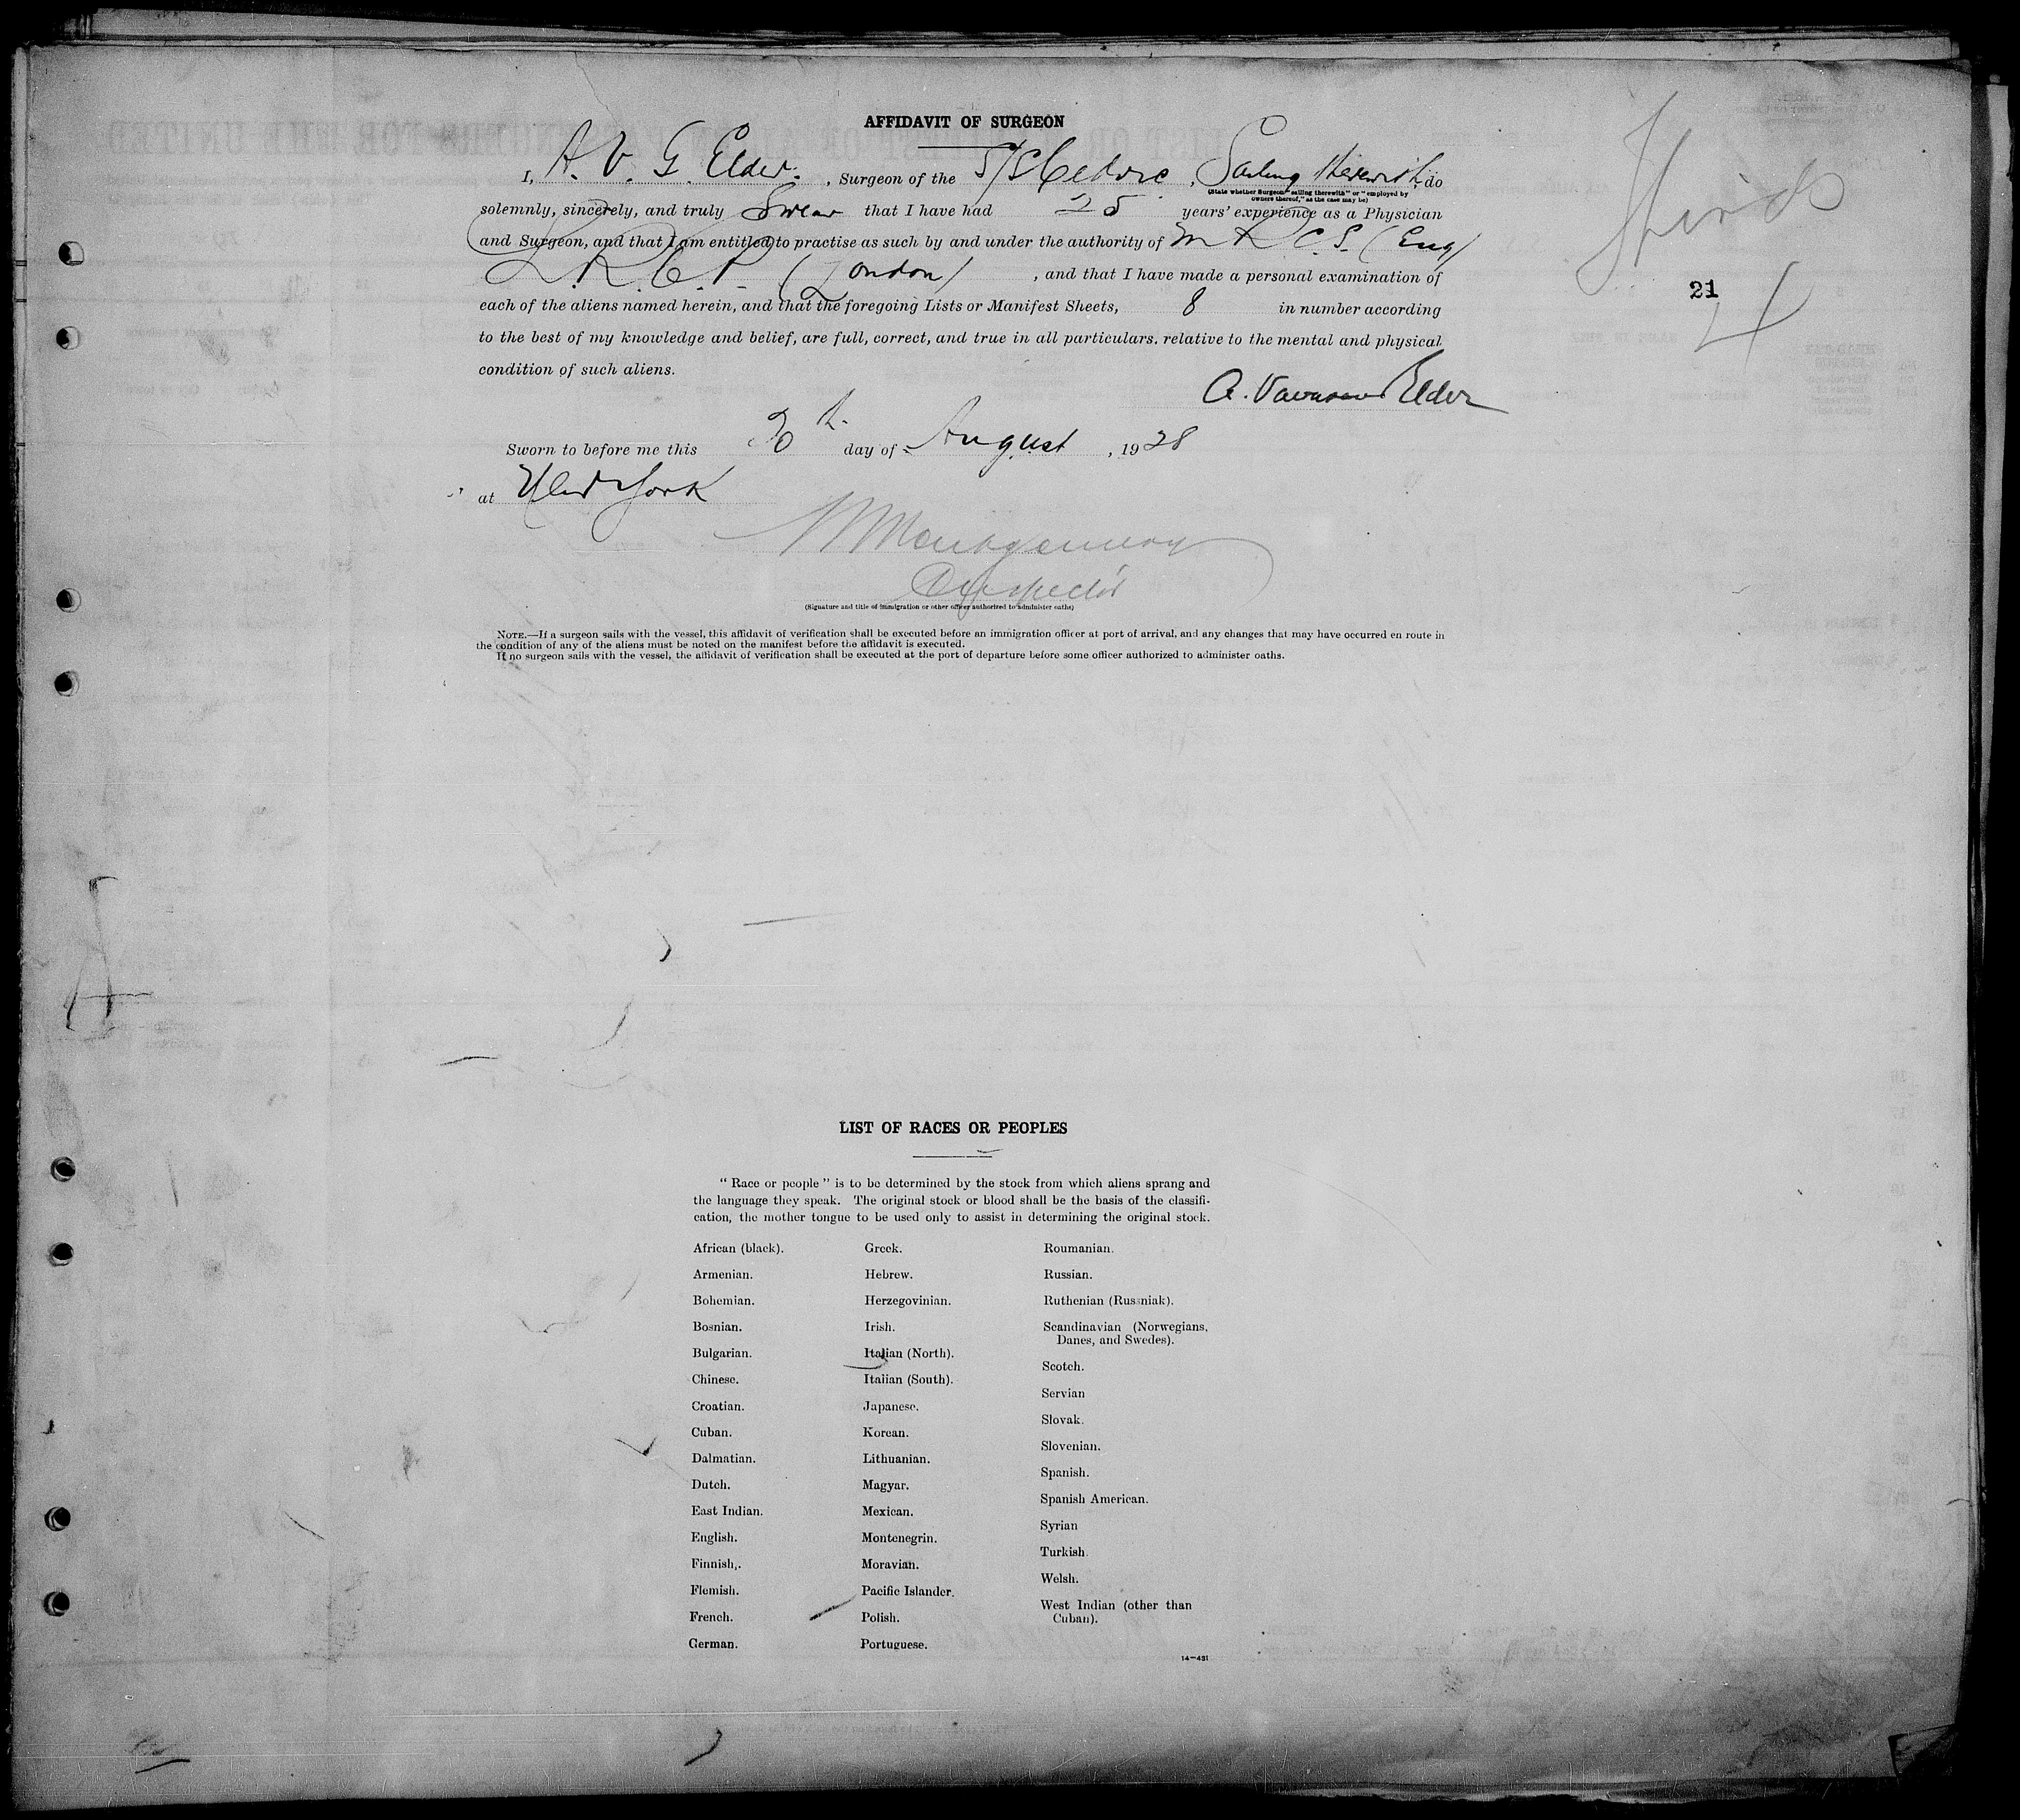 AFFIDAVIT OF SURGEON
I, A. V. G. Elder. , Surgeon of the S/S Cedric , Sailing therewith, do
(State whether Surgeon "sailing therewith" or "employed by
owners thereof," as the case may be)
solemnly, sincerely, and truly Swear that I have had 25 years' experience as a Physician
and Surgeon, and that I am entitled to practise as such by and under the authority of M R C S. (Eng)
L.R.C.P. (London) , and that I have made a personal examination of
each of the aliens named herein, and that the foregoing Lists or Manifest Sheets, 8 in number according
to the best of my knowledge and belief, are full, correct, and true in all particulars. relative to the mental and physical
condition of such aliens.
21
4
A. Elder
Sworn to before me this 20th day of August , 1928
at New York
Montgomery
Inspector
(Signature and title of immigration or other officer authorized to administer oaths)
NOTE.—If a surgeon sails with the vessel, this affidavit of verification shall be executed before an immigration officer at port of arrival, and any changes that may have occurred en route in
the condition of any of the aliens must be noted on the manifest before the affidavit is executed.
If no surgeon sails with the vessel, the affidavit of verification shall be executed at the port of departure before some officer authorized to administer oaths.
LIST OF RACES OR PEOPLES
"Race or people" is to be determined by the stock from which aliens sprang and
the language they speak. The original stock or blood shall be the basis of the classifi-
cation, the mother tongue to be used only to assist in determining the original stock.
African (black).
Armenian.
Bohemian.
Bosnian.
Bulgarian.
Chinese.
Croatian.
Cuban.
Dalmatian.
Dutch.
East Indian.
English.
Finnish.
Flemish.
French.
German.
Greek.
Hebrew.
Herzegovinian.
Irish.
Italian (North).
Italian (South).
Japanese.
Korean.
Lithuanian.
Magyar.
Mexican.
Montenegrin.
Moravian.
Pacific Islander.
Polish.
Portuguese.
Roumanian.
Russian.
Ruthenian (Russniak).
Scandinavian (Norwegians,
Danes, and Swedes).
Scotch.
Servian
Slovak.
Slovenian.
Spanish.
Spanish American.
Syrian
Turkish
Welsh.
West Indian (other than
Cuban).
14—431